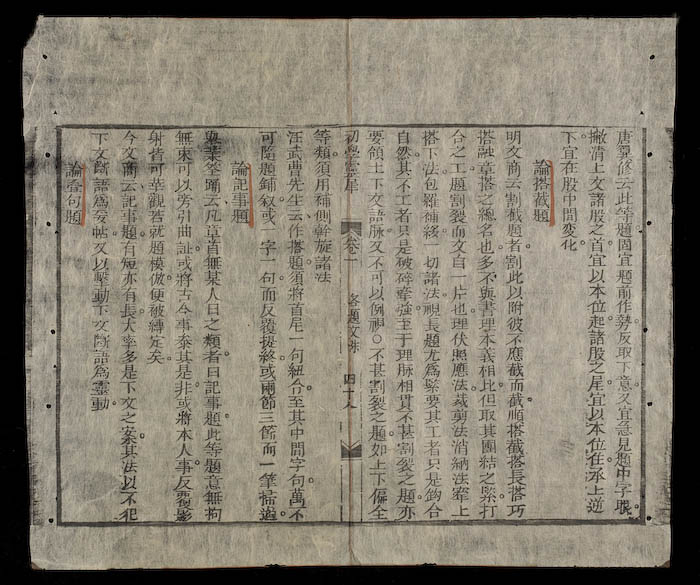 唐翼修云此等題固宜題前作勢反取下意又宜急見題中字眼
撇清上文諸股之首宜以本位起諸股之尾宜以本位住承上逆
下宜在股中間變化
論搭截題
明文商云割截題者割此以附彼不應截而截順搭截搭長搭巧
搭融章搭之總名也多不與書理本義相比但取其團結之緊打
合之工題割裂而文自一片也理伏照應法裁剪法消納法牽上
搭下法包羅補綴一切諸法視長題尤爲緊要其工者只是鈎合
自然其不工者只是破碎牽強至于理脉相貫不甚割裂之題亦
要領上下文語脉又不可以例視○不甚割裂之題如上下偏全
初學
卷一
各題文味
四十八
等類須用補側斡旋諸法
汪武曹先生云作搭題須將首尾一句紐合至其中間字句萬不
可隨題鋪叙或一字一句而反覆提終或兩節三節而一筆掃過
論記事題
云凡章首無某人曰之類者曰記事題此等題意無拘
無束可以旁引曲証或將古今事叅其是非或將本人事反覆影
射皆可華觀若就題模倣便被縛定矣
今文商云記事題有短亦有長大率多是下文之案其法以不犯
下文斷語爲妥帖又以擊動下文斷語爲靈動
論叠句題